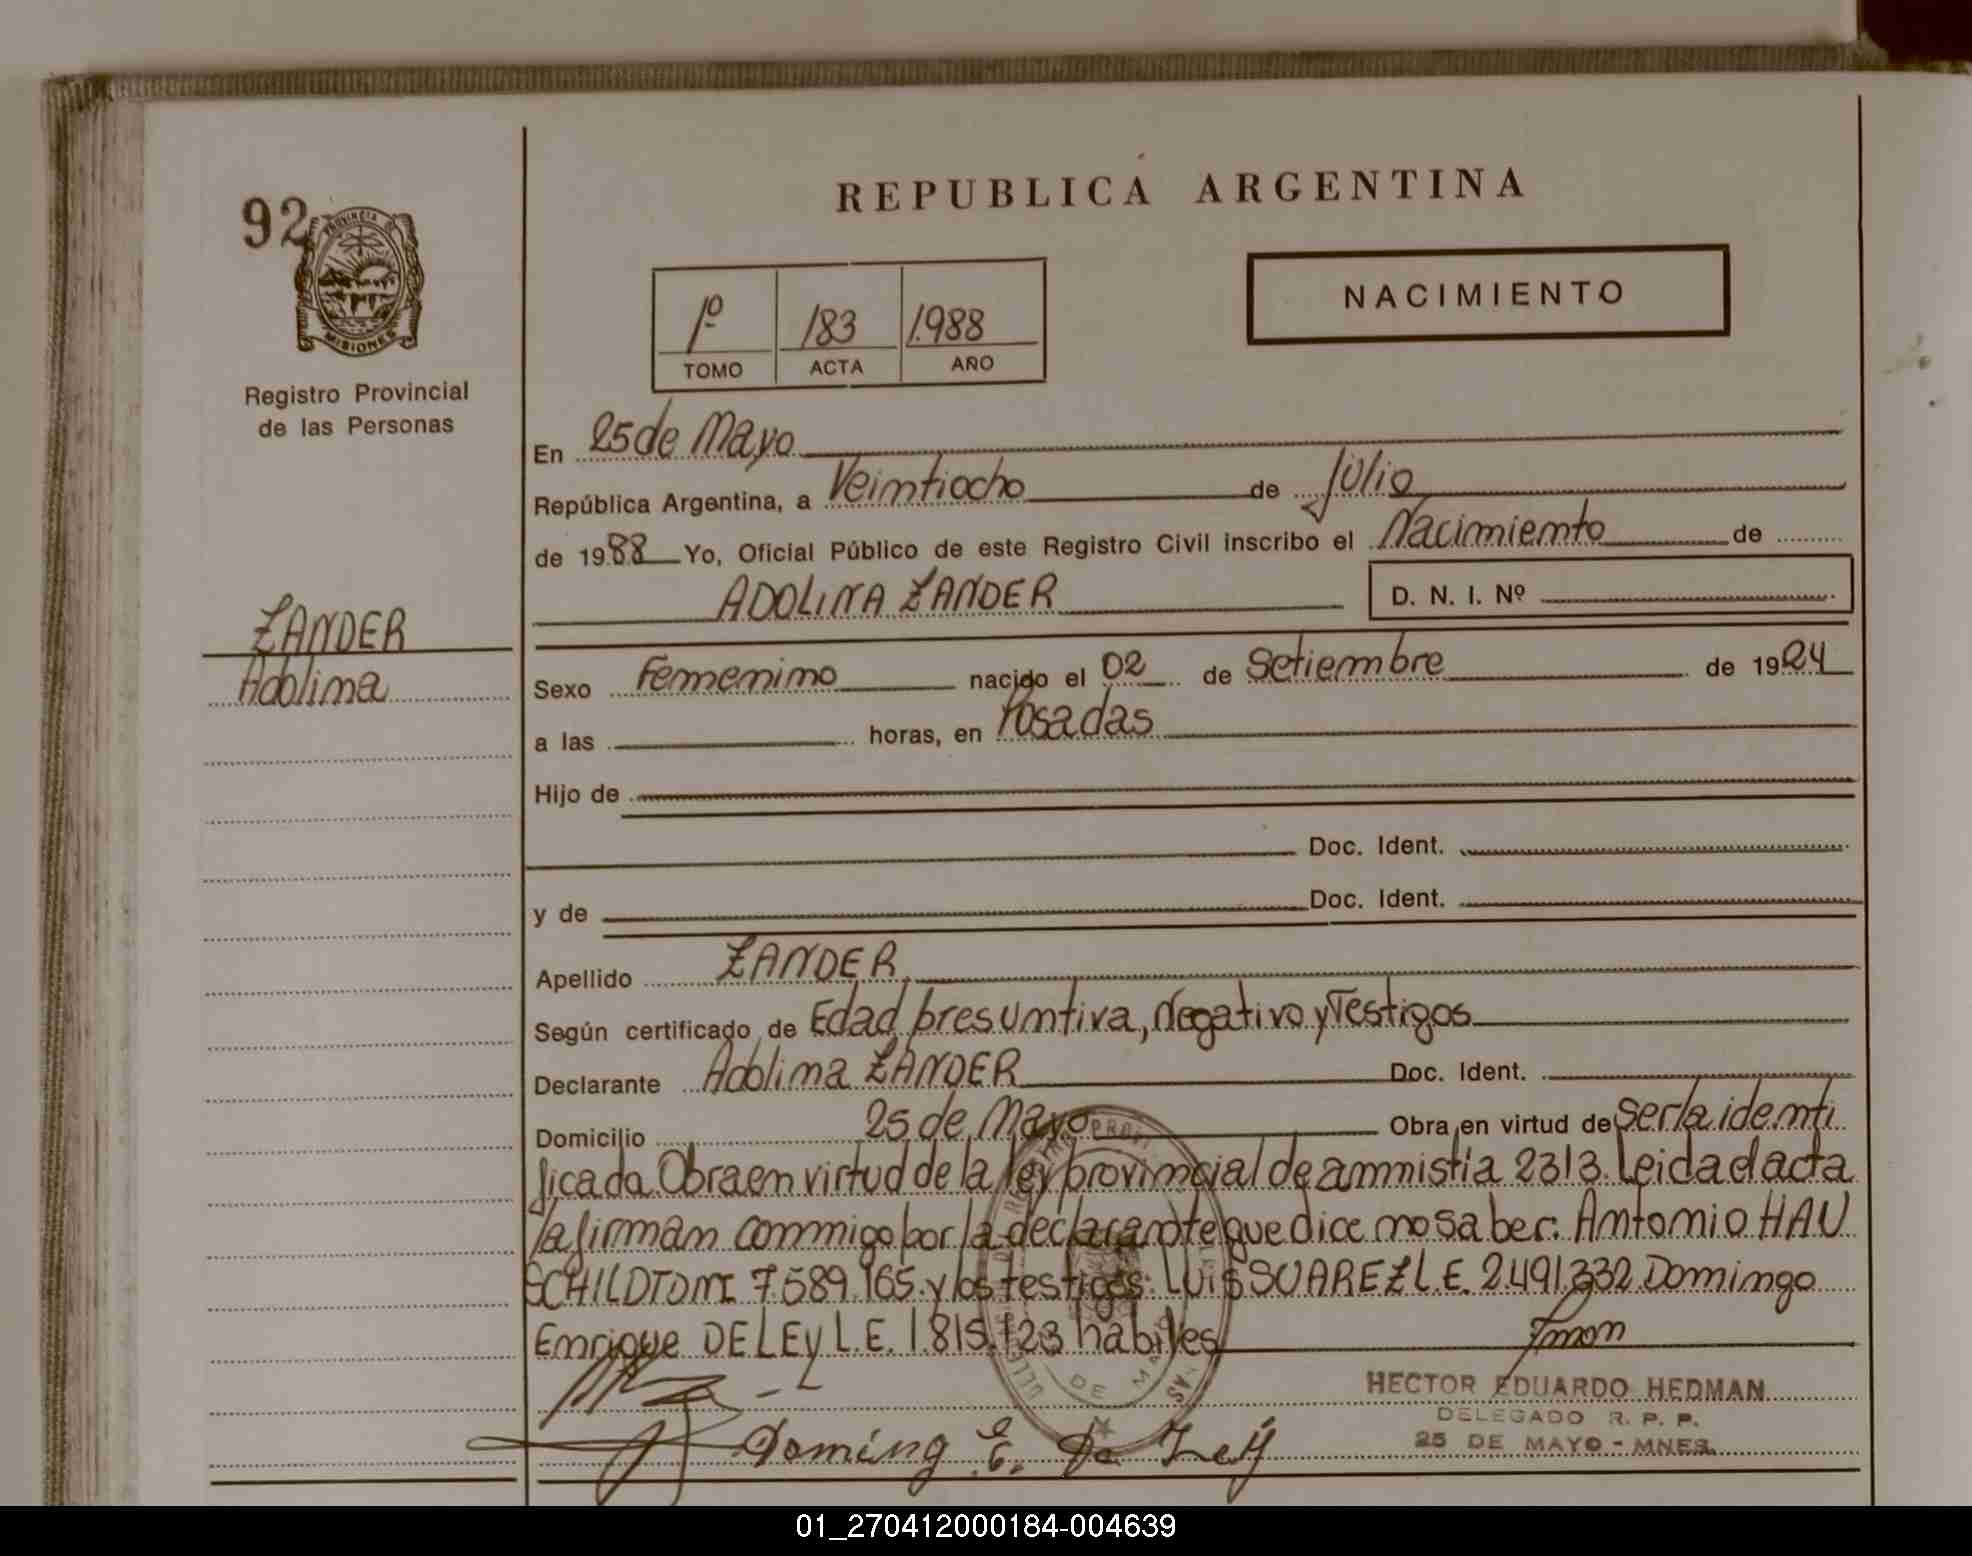 REPUBLICA ARGENTINA
92
PROVINCIA DE
MISIONES
Registro Provincial
de las Personas
NACIMIENTO
1º 183 1.988
TOMO ACTA AÑO
En 25 de Mayo
República Argentina, a Veintiocho de Julio
de 1988 Yo, Oficial Público de este Registro Civil inscribo el Nacimiento de
ADOLINA ZANDER D. N. I. Nº
ZANDER
Adolina
Sexo Femenino nacido el 02 de Setiembre de 1924
a las horas, en Posadas
Hijo de
Doc. Ident.
y de Doc. Ident.
Apellido ZANDER
Según certificado de Edad presuntiva, Negativo y Testigos
Declarante Adolina ZANDER Doc. Ident.
Domicilio 25 de Mayo Obra en virtud de Ser la identi
ficada. Obra en virtud de la ley provincial de amnistia 2313. Leida el acta
la firman conmigo por la declarante que dice no saber: Antonio HAU
SCHILDT DNI 7.589.165. y los testigos: LUIS SUAREZ L.E. 2.491.332 Domingo
Enrique DE LEY L.E. 1.815.123 habiles
HECTOR EDUARDO HEDMAN
DELEGADO R. P. P.
25 DE MAYO - MNES.
Domingo E. De Ley
01_270412000184-004639